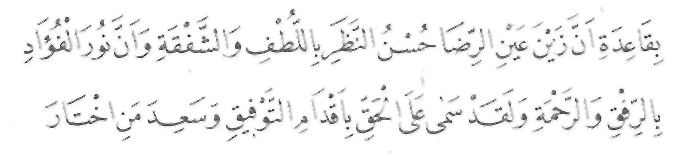 بِقَاعِدَةِ اَنَّ زَيْنَ عَيْنِ الرِّضَا حُسْنُ النَّظَرِ بِاللُّطْفِ وَالشَّفْقَةِ وَاَنَّ نُورَ الْفُؤَادِ
بِالرِّفْقِ وَالرَّحْمَةِ وَلَقَدْ سَمٰى عَلَى الْحَقِّ بِاَقْدَامِ التَّوْفِيقِ وَسَعِدَ مَنِ اخْتَارَ